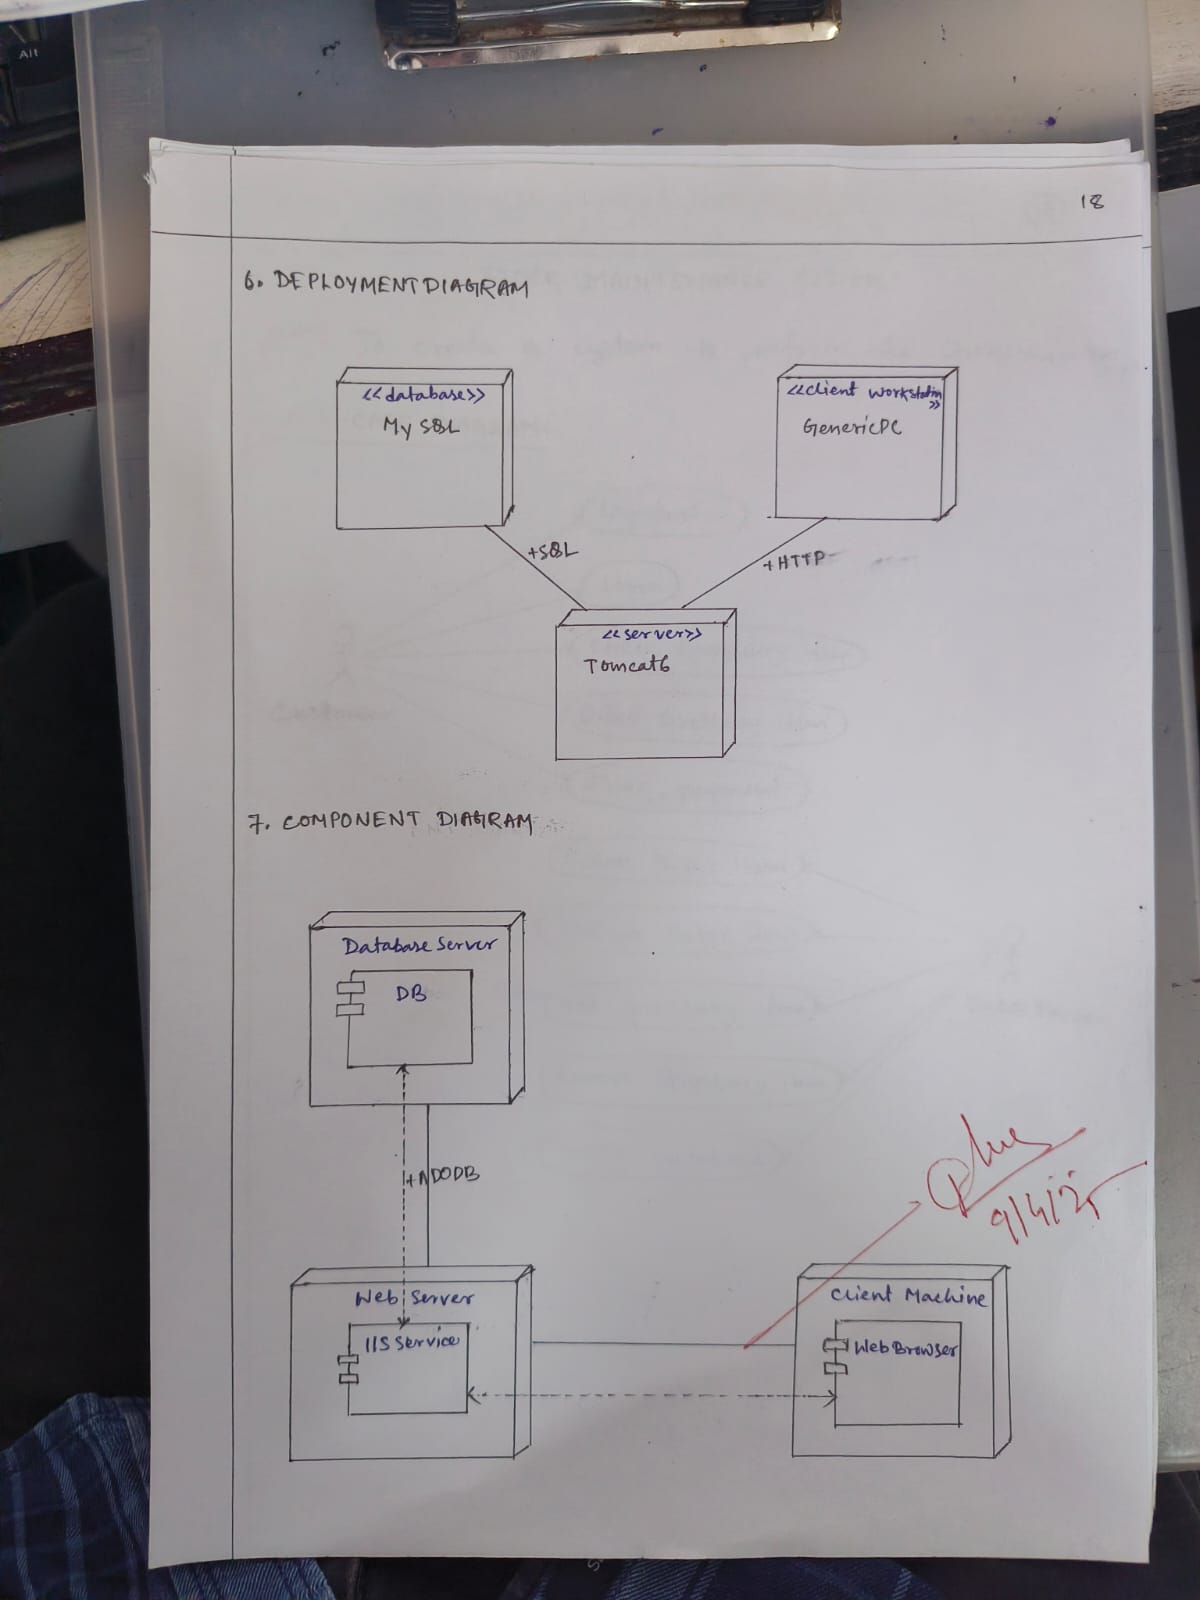 Alt
18
6. DEPLOYMENT DIAGRAM
<<database>>
My SQL
<<client workstation
>>
GenericPC
+SQL
+HTTP
<<server>>
Tomcat6
7. COMPONENT DIAGRAM
Database Server
DB
+ADODB
Web Server
IIS Service
Client Machine
WebBrowser
9/4/25